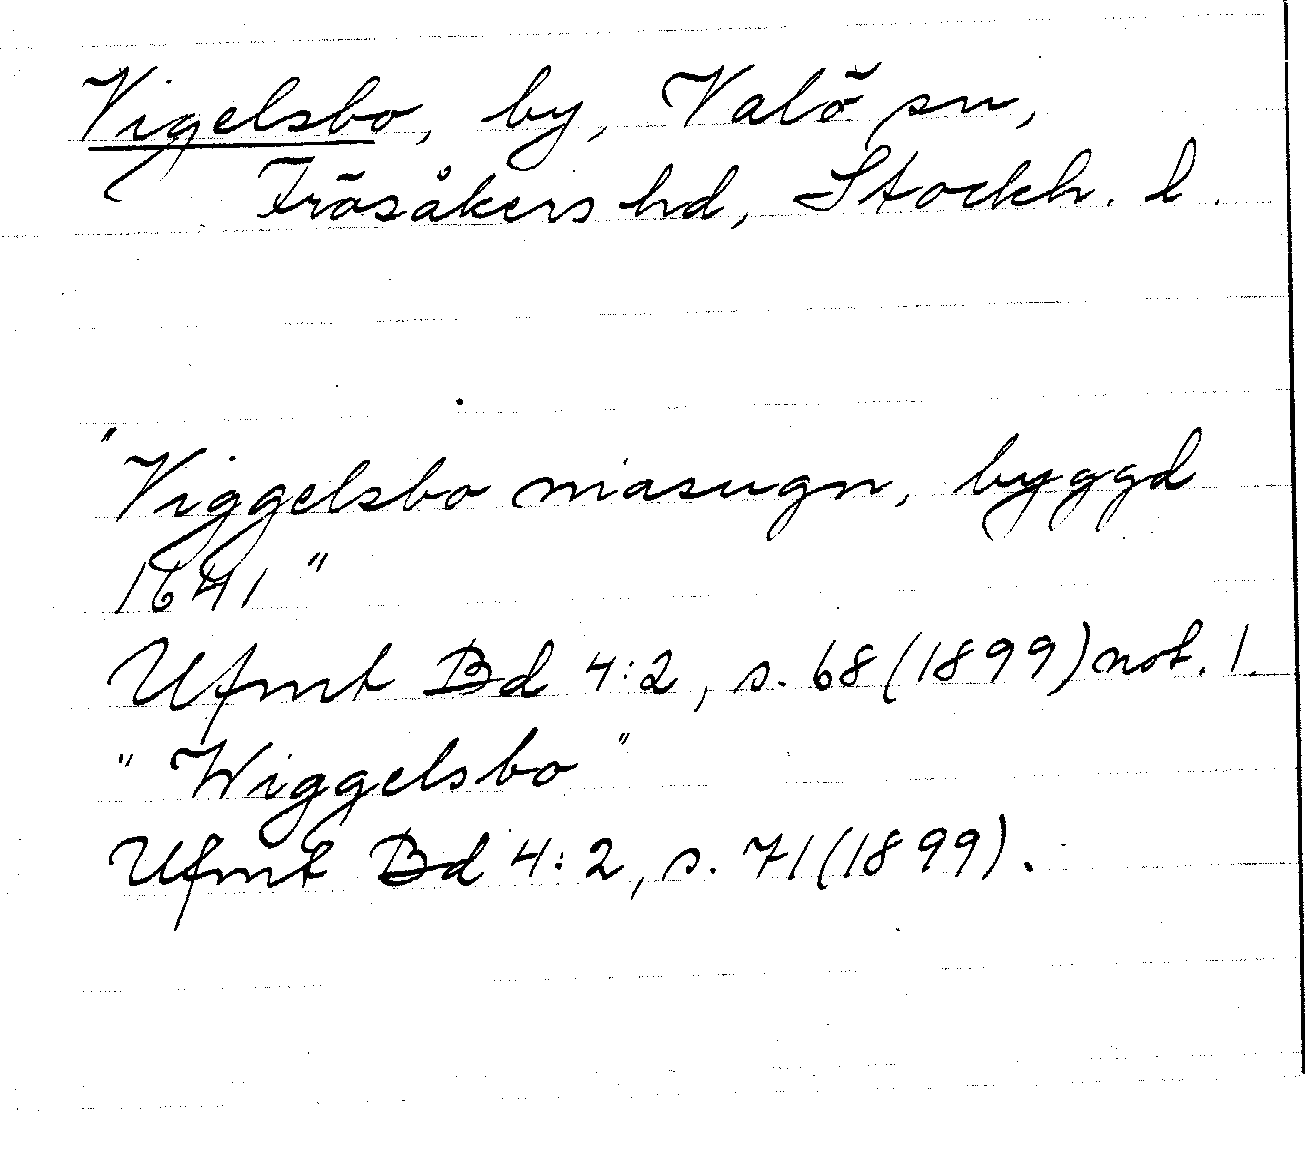 Vigelsbo, by, Valö sn,
Frösåkers hd, Stockh. l.
"Viggelsbo masugn, byggd
1641"
Ufmt Bd 4:2, s. 68 (1899) not. 1.
"Wiggelsbo"
Ufmt Bd 4:2, s. 71 (1899).